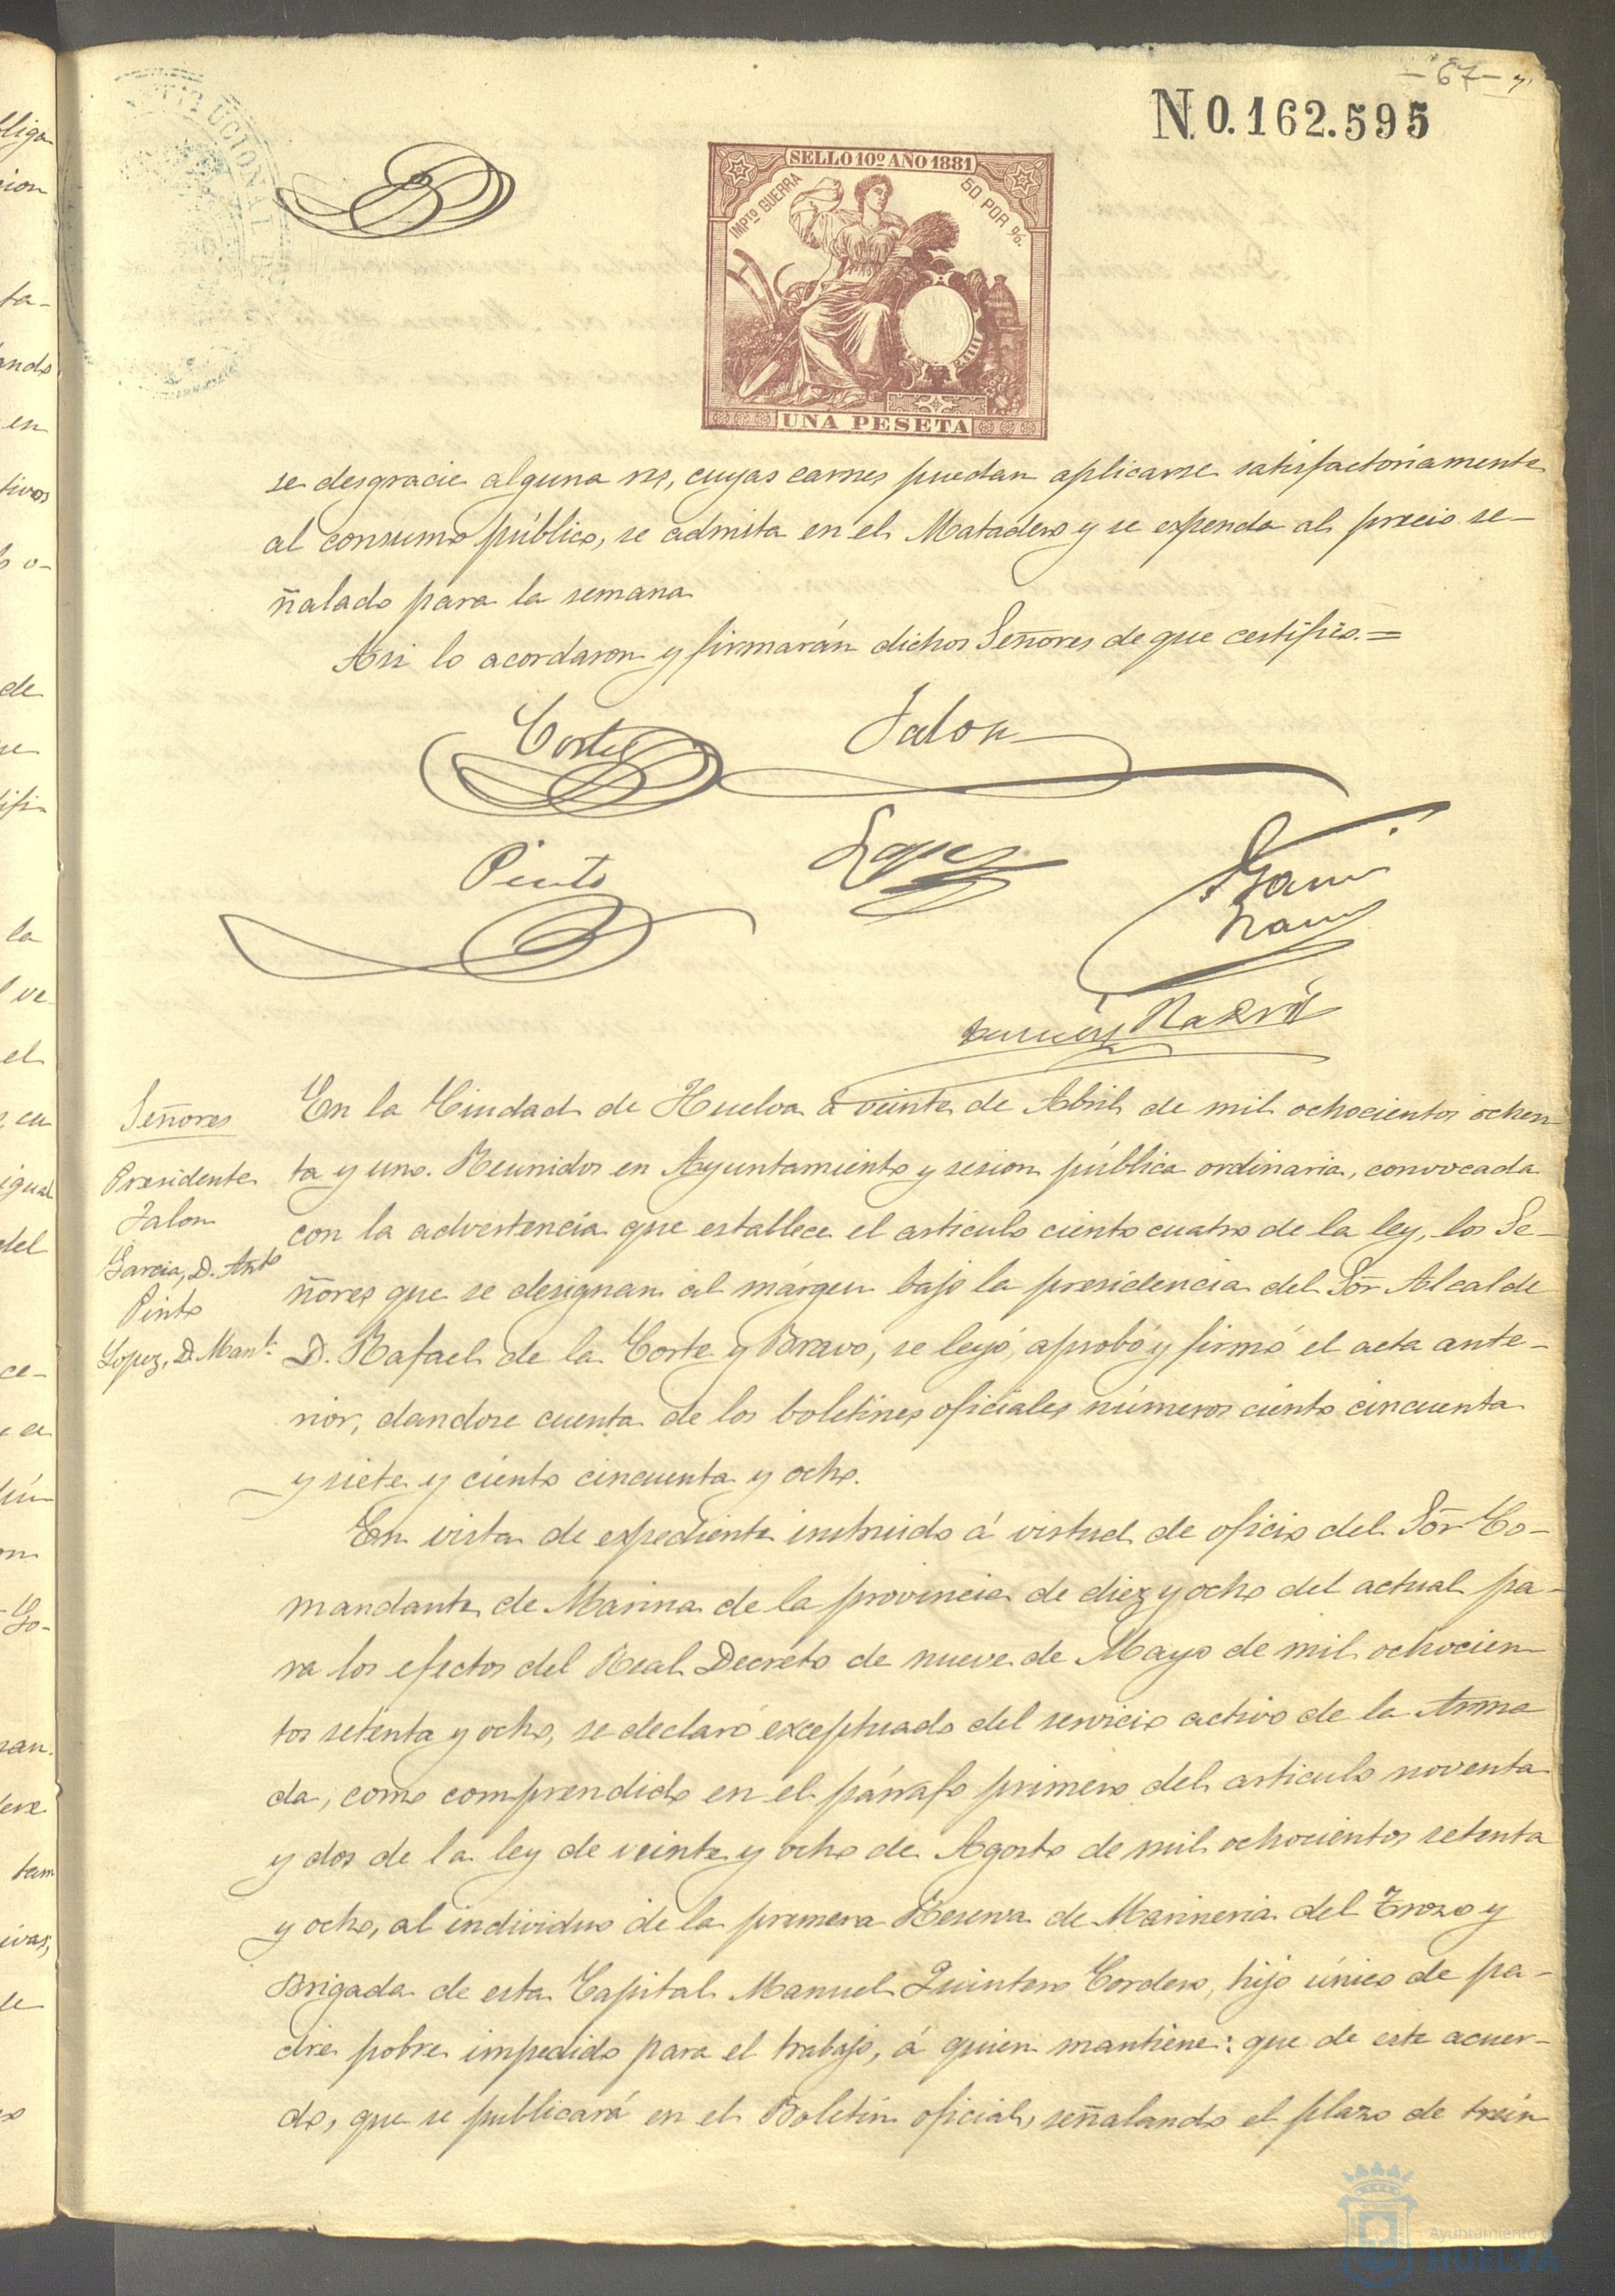 -67-
N.0.162.595
SELLO 10º AÑO 1881
IMPTO GUERRA 50 POR %.
UNA PESETA
se desgracie alguna res, cuyas carnes puedan aplicarse satisfactoriamente
al consumo público, se admita en el Matadero y se expenda al precio se-
ñalado para la semana
Asi lo acordaron y firmarán dichos Señores de que certifico.=
Corte Jalon
Pinto Lopez Garcia
Ramos
En la Ciudad de Huelva a veinte de Abril de mil ochocientos ochen
ta y uno. Reunidos en Ayuntamiento y sesion pública ordinaria, convocada
con la advertencia que establece el articulo ciento cuatro de la ley, los Se-
ñores que se designan al márgen bajo la presidencia del Sor Alcalde
D. Rafael de la Corte y Bravo, se leyó, aprobó y firmó el acta ante-
rior, dandose cuenta de los boletines oficiales números ciento cincuenta
y siete y ciento cincuenta y ocho.
Señores
Presidente
Jalon
Garcia, D. Anto
Pinto
Lopez, D. Manl.
En vista de expediente instruido á virtud de oficio del Sor Co-
mandante de Marina de la provincia de diez y ocho del actual pa-
ra los efectos del Real Decreto de nueve de Mayo de mil ochocien
tos setenta y ocho, se declaró exceptuado del servicio activo de la Arma
da, como comprendido en el párrafo primero del articulo noventa
y dos de la ley de veinte y ocho de Agosto de mil ochocientos setenta
y ocho, al individuo de la primera Reserva de Marineria del Trozo y
Brigada de esta Capital Manuel Quintero Cordero, hijo único de pa-
dre pobre impedido para el trabajo, á quien mantiene: que de este acuer-
do, que se publicará en el Boletin oficial, señalando el plazo de trein
Ayuntamiento d
HUELVA